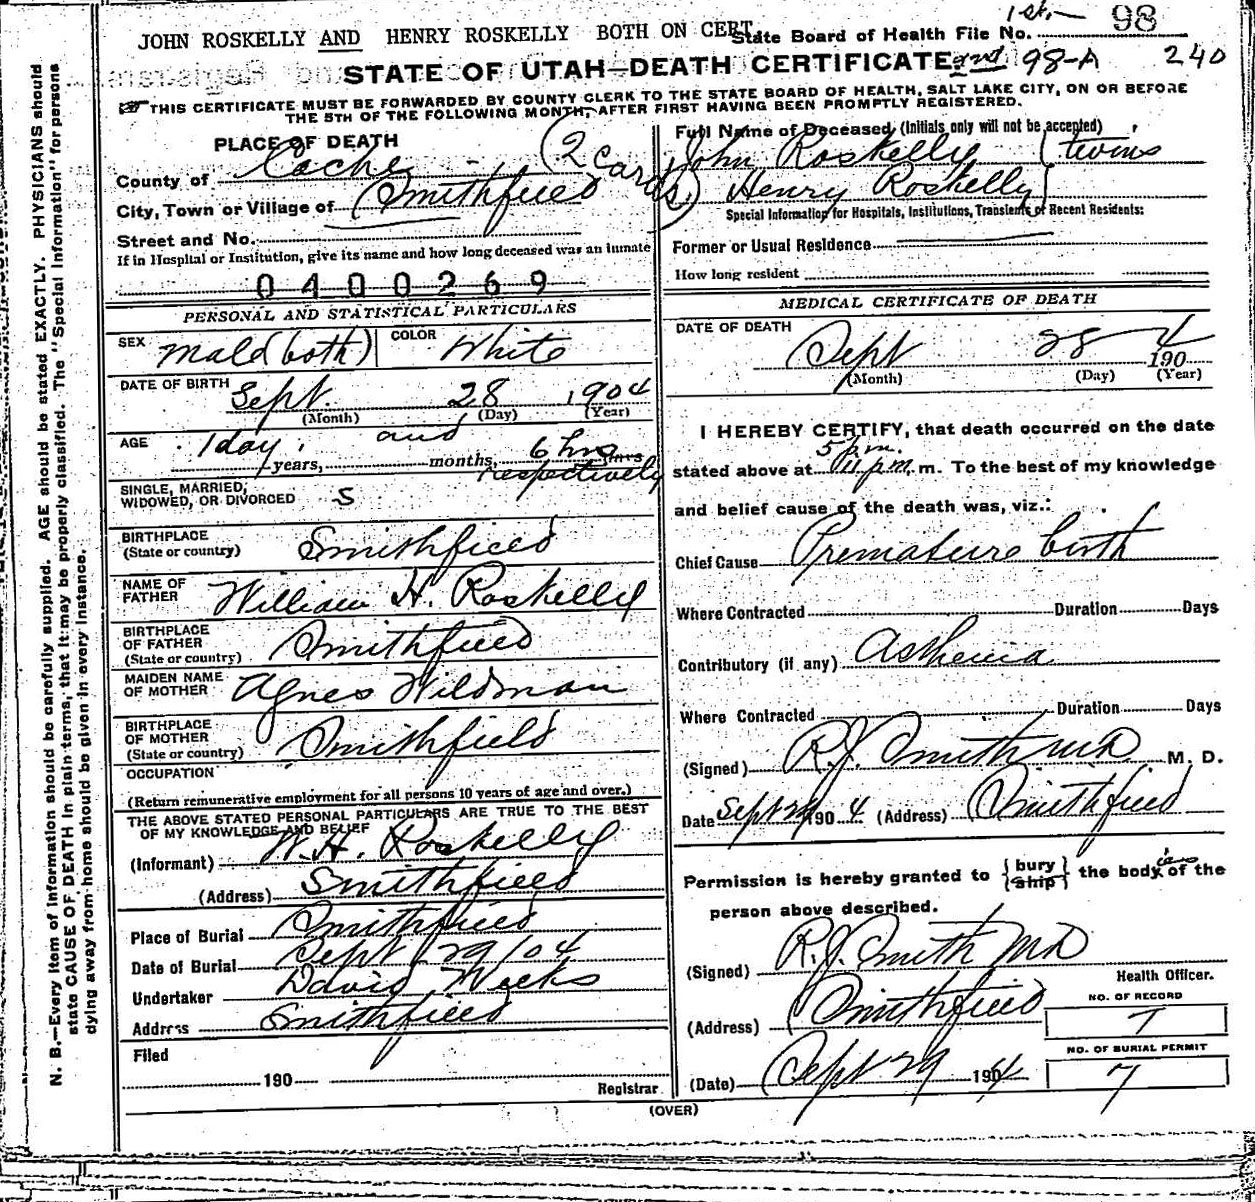 JOHN ROSKELLY AND HENRY ROSKELLY BOTH ON CERT.
1st. 98
State Board of Health File No.
STATE OF UTAH—DEATH CERTIFICATE 2nd 98-A 240
THIS CERTIFICATE MUST BE FORWARDED BY COUNTY CLERK TO THE STATE BOARD OF HEALTH, SALT LAKE CITY, ON OR BEFORE
THE 5TH OF THE FOLLOWING MONTH, AFTER FIRST HAVING BEEN PROMPTLY REGISTERED.
PLACE OF DEATH
County of Cache (2 cards)
City, Town or Village of Smithfield
Street and No.
If in Hospital or Institution, give its name and how long deceased was an inmate
0400269
PERSONAL AND STATISTICAL PARTICULARS
SEX Male (both) COLOR White
DATE OF BIRTH Sept 28 1904
(Month) (Day) (Year)
AGE 1 day and 6 hrs
years, months, days
respectively
SINGLE, MARRIED,
WIDOWED, OR DIVORCED S
BIRTHPLACE
(State or country) Smithfield
NAME OF
FATHER William H. Roskelly
BIRTHPLACE
OF FATHER
(State or country) Smithfield
MAIDEN NAME
OF MOTHER Agnes Wildman
BIRTHPLACE
OF MOTHER
(State or country) Smithfield
OCCUPATION
(Return remunerative employment for all persons 10 years of age and over.)
THE ABOVE STATED PERSONAL PARTICULARS ARE TRUE TO THE BEST
OF MY KNOWLEDGE AND BELIEF
(Informant) W. H. Roskelly
(Address) Smithfield
Place of Burial Smithfield
Date of Burial Sept 29/04
Undertaker David Weeks
Address Smithfield
Filed
190
Registrar
Full Name of Deceased (Initials only will not be accepted)
John Roskelly (twins
Henry Roskelly
Special Information for Hospitals, Institutions, Transients or Recent Residents:
Former or Usual Residence
How long resident
MEDICAL CERTIFICATE OF DEATH
DATE OF DEATH
Sept 28 1904
(Month) (Day) (Year)
I HEREBY CERTIFY, that death occurred on the date
5 p.m.
stated above at 11 p.m. m. To the best of my knowledge
and belief cause of the death was, viz.:
Chief Cause Premature birth
Where Contracted Duration Days
Contributory (if any) Asthenia
Where Contracted Duration Days
(Signed) R. J. Smith MD M. D.
Date Sept 29 1904 (Address) Smithfield
Permission is hereby granted to {bury / ship} the bodyies of the
person above described.
(Signed) R. J. Smith MD
Health Officer.
(Address) Smithfield
NO. OF RECORD
7
(Date) Sept 29 1904
NO. OF BURIAL PERMIT
7
(OVER)
N. B.—Every item of information should be carefully supplied. AGE should be stated EXACTLY. PHYSICIANS should
state CAUSE OF DEATH in plain terms, that it may be properly classified. The "Special Information" for persons
dying away from home should be given in every instance.